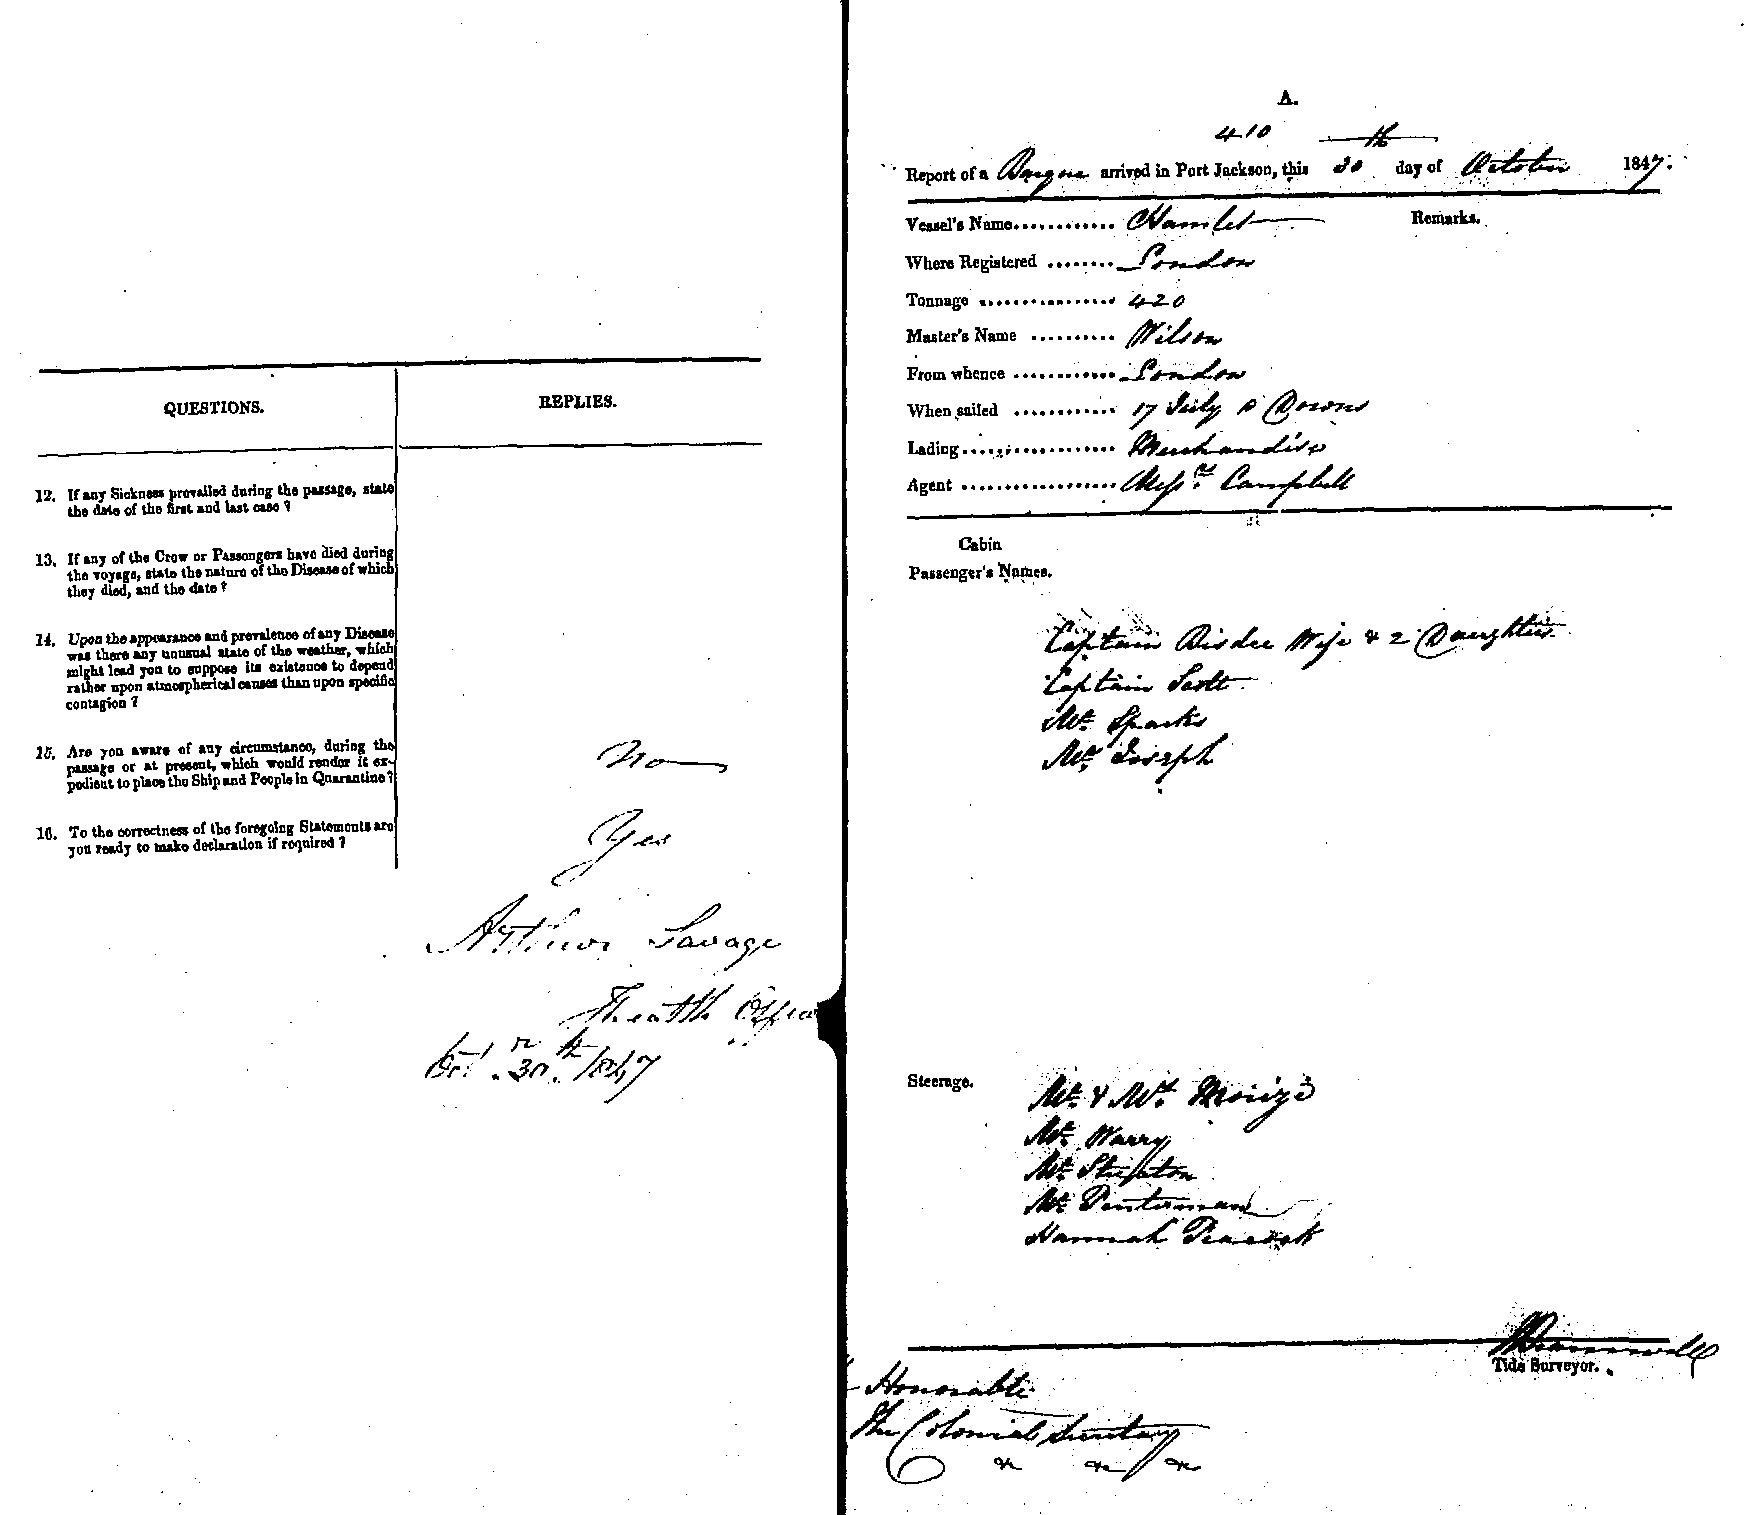 QUESTIONS.
REPLIES.
12. If any Sickness prevailed during the passage, state
the date of the first and last case ?
13. If any of the Crew or Passengers have died during
the voyage, state the nature of the Disease of which
they died, and the date ?
14. Upon the appearance and prevalence of any Disease
was there any unusual state of the weather, which
might lead you to suppose its existence to depend
rather upon atmospherical causes than upon specific
contagion ?
15. Are you aware of any circumstance, during the
passage or at present, which would render it ex-
pedient to place the Ship and People in Quarantine ?
No
16. To the correctness of the foregoing Statements are
you ready to make declaration if required ?
Yes
Arthur Savage
Health Officer
Oct. 30th. 1847
A.
410
Report of a Barque arrived in Port Jackson, this 30th day of October 1847.
Vessel's Name Hamlet
Remarks.
Where Registered London
Tonnage 420
Master's Name Wilson
From whence London
When sailed 17 July Downs
Lading Merchandise
Agent Messrs. Campbell
Cabin
Passenger's Names.
Captain Wife & 2 Daughters
Captain Scott
Mr. Sparks
Mr. Joseph
Steerage.
Mr. & Mrs.
Mr. Warry
Mr.
Mr.
Hannah Peacock
Tide Surveyor.
Honorable
The Colonial Secretary
&c &c &c